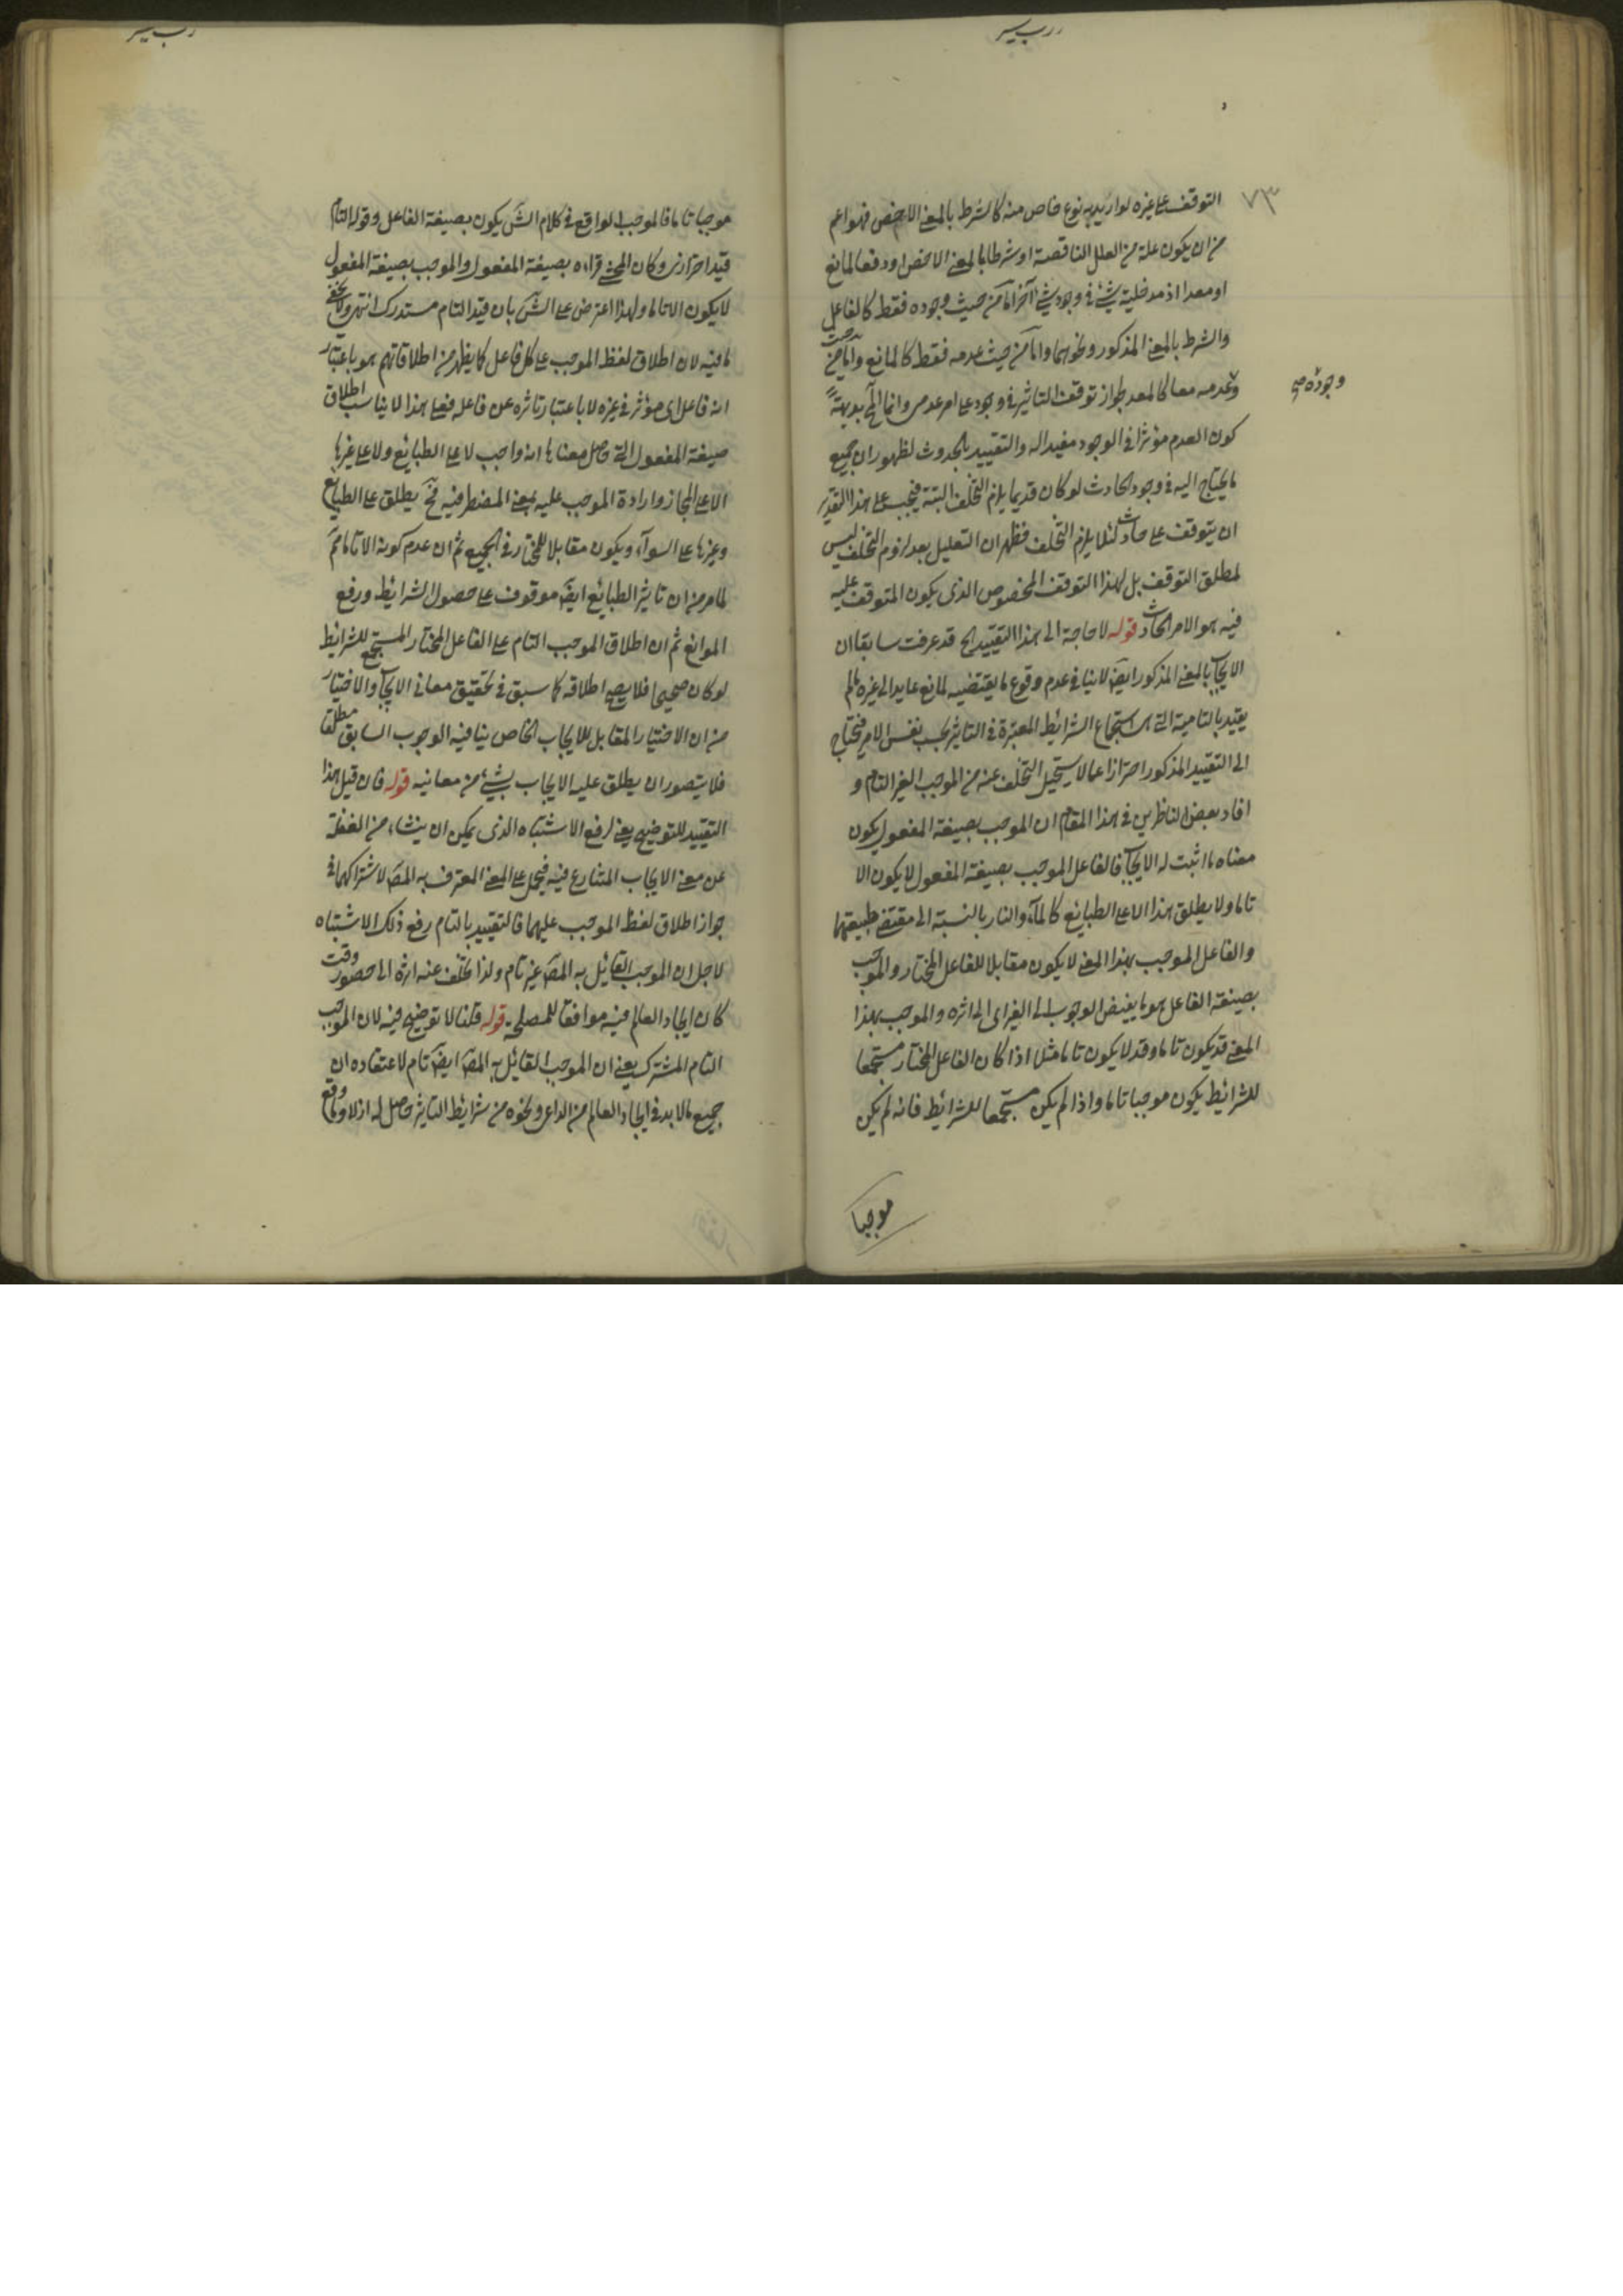 ٧٣
التوقف على غيره لو اريد به نوع خاص منه كالشرط بالمعنى الاخص فهو اعم
من ان يكون علة من العلل الناقصة او شرطا بالمعنى الاخص او دفعا لمانع
او معدا اذ مدخلية شئ فى وجود شئ آخر اما من حيث وجوده فقط كالفاعل
والشرط بالمعنى المذكور ونحوهما واما من حيث عدمه فقط كالمانع واما من حيث
وعدمه معا كالمعد لجواز توقف التاثير فى وجود على امر عدمى وانما المح بديهة
وجوده صح
كون العدم مؤثرا فى الوجود مفيدا له والتقييد بالحدوث لظهور ان جميع
ما يحتاج اليه فى وجود الحادث لو كان قديما يلزم التخلف البتة فيجب على هذا التقدير
ان يتوقف على حادث لئلا يلزم التخلف فظهر ان التعليل بعد لزوم التخلف ليس
لمطلق التوقف بل لهذا التوقف المخصوص الذى يكون المتوقف عليه
فيه هو الامر الحادث قوله لا حاجة الى هذا التقييد الخ قد عرفت سابقا ان
الايجاب بالمعنى المذكور ايضا لا ينافى عدم وقوع ما يقتضيه لمانع عايد الى غيره ما لم
يقيد بالتامية التى هى استجماع الشرائط المعتبرة فى التاثير بحسب نفس الامر فيحتاج
الى التقييد المذكور احترازا عما لا يستحيل التخلف عنه من الموجب الغير التام و
افاد بعض الناظرين فى هذا المقام ان الموجب بصيغة المفعول يكون
معناه ما اثبت له الايجاب فالفاعل الموجب بصيغة المفعول لا يكون الا
تاما ولا يطلق هذا الا على الطبائع كالماء والنار بالنسبة الى مقتضى طبيعتهما
والفاعل الموجب بهذا المعنى لا يكون مقابلا للفاعل المختار والموجب
بصيغة الفاعل هو ما يفيض الوجوب الى الغير اى الى اثره والموجب بهذا
المعنى قد يكون تاما وقد لا يكون تاما مثلا اذا كان الفاعل المختار مستجمعا
للشرائط يكون موجبا تاما واذا لم يكن مستجمعا للشرائط فانه لم يكن
موجبا
موجبا تاما فالموجب الواقع فى كلام الش يكون بصيغة الفاعل وقوله التام
قيد احترازى وكان المحشى قراءه بصيغة المفعول والموجب بصيغة المفعول
لا يكون الا تاما ولهذا اعترض على الش بان قيد التام مستدرك انتهى ولا يخفى
ما فيه لان اطلاق لفظ الموجب على كل فاعل كما يظهر من اطلاقاتهم هو باعتبار
انه فاعل اى مؤثر فى غيره لا باعتبار تاثره عن فاعله فعلى هذا لا يناسب اطلاق
صيغة المفعول التى حاصل معناها انه واجب لا على الطبائع ولا على غيرها
الا على المجاز وارادة الموجب عليه بمعنى المضطر فيه فح يطلق على الطبائع
وغيرها على السواء ويكون مقابلا للمختار فى الجميع ثم ان عدم كونه الا تاما مم
لما مر من ان تاثير الطبائع ايضا موقوف على حصول الشرائط ورفع
الموانع ثم ان اطلاق الموجب التام على الفاعل المختار المستجمع للشرائط
لو كان صحيحا فلا يصح اطلاقه كما سبق فى تحقيق معانى الايجاب والاختيار
من ان الاختيار المقابل للايجاب الخاص ينافيه الوجوب السابق مطلقا
فلا يتصور ان يطلق عليه الايجاب بشئ من معانيه قوله فان قيل هذا
التقييد للتوضيح يعنى لرفع الاشتباه الذى يمكن ان ينشاء من الغفلة
عن معنى الايجاب المتنازع فيه فيحمل على المعنى المعترف به المص لاشتراكهما فى
جواز اطلاق لفظ الموجب عليهما فالتقييد بالتام رفع ذلك الاشتباه
لاجل ان الموجب القائل به المص غير تام ولذا تخلف عنه اثره الى حضور وقت
كان ايجاد العالم فيه موافقا للمصلحة قوله قلنا لا توضيح فيه لان الموجب
التام المشترك يعنى ان الموجب القائل به المص ايضا تام لاعتقاده ان
جميع ما لا بد فى ايجاد العالم من الداعى ونحوه من شرائط التاثير حاصل له ازلا وما وقع